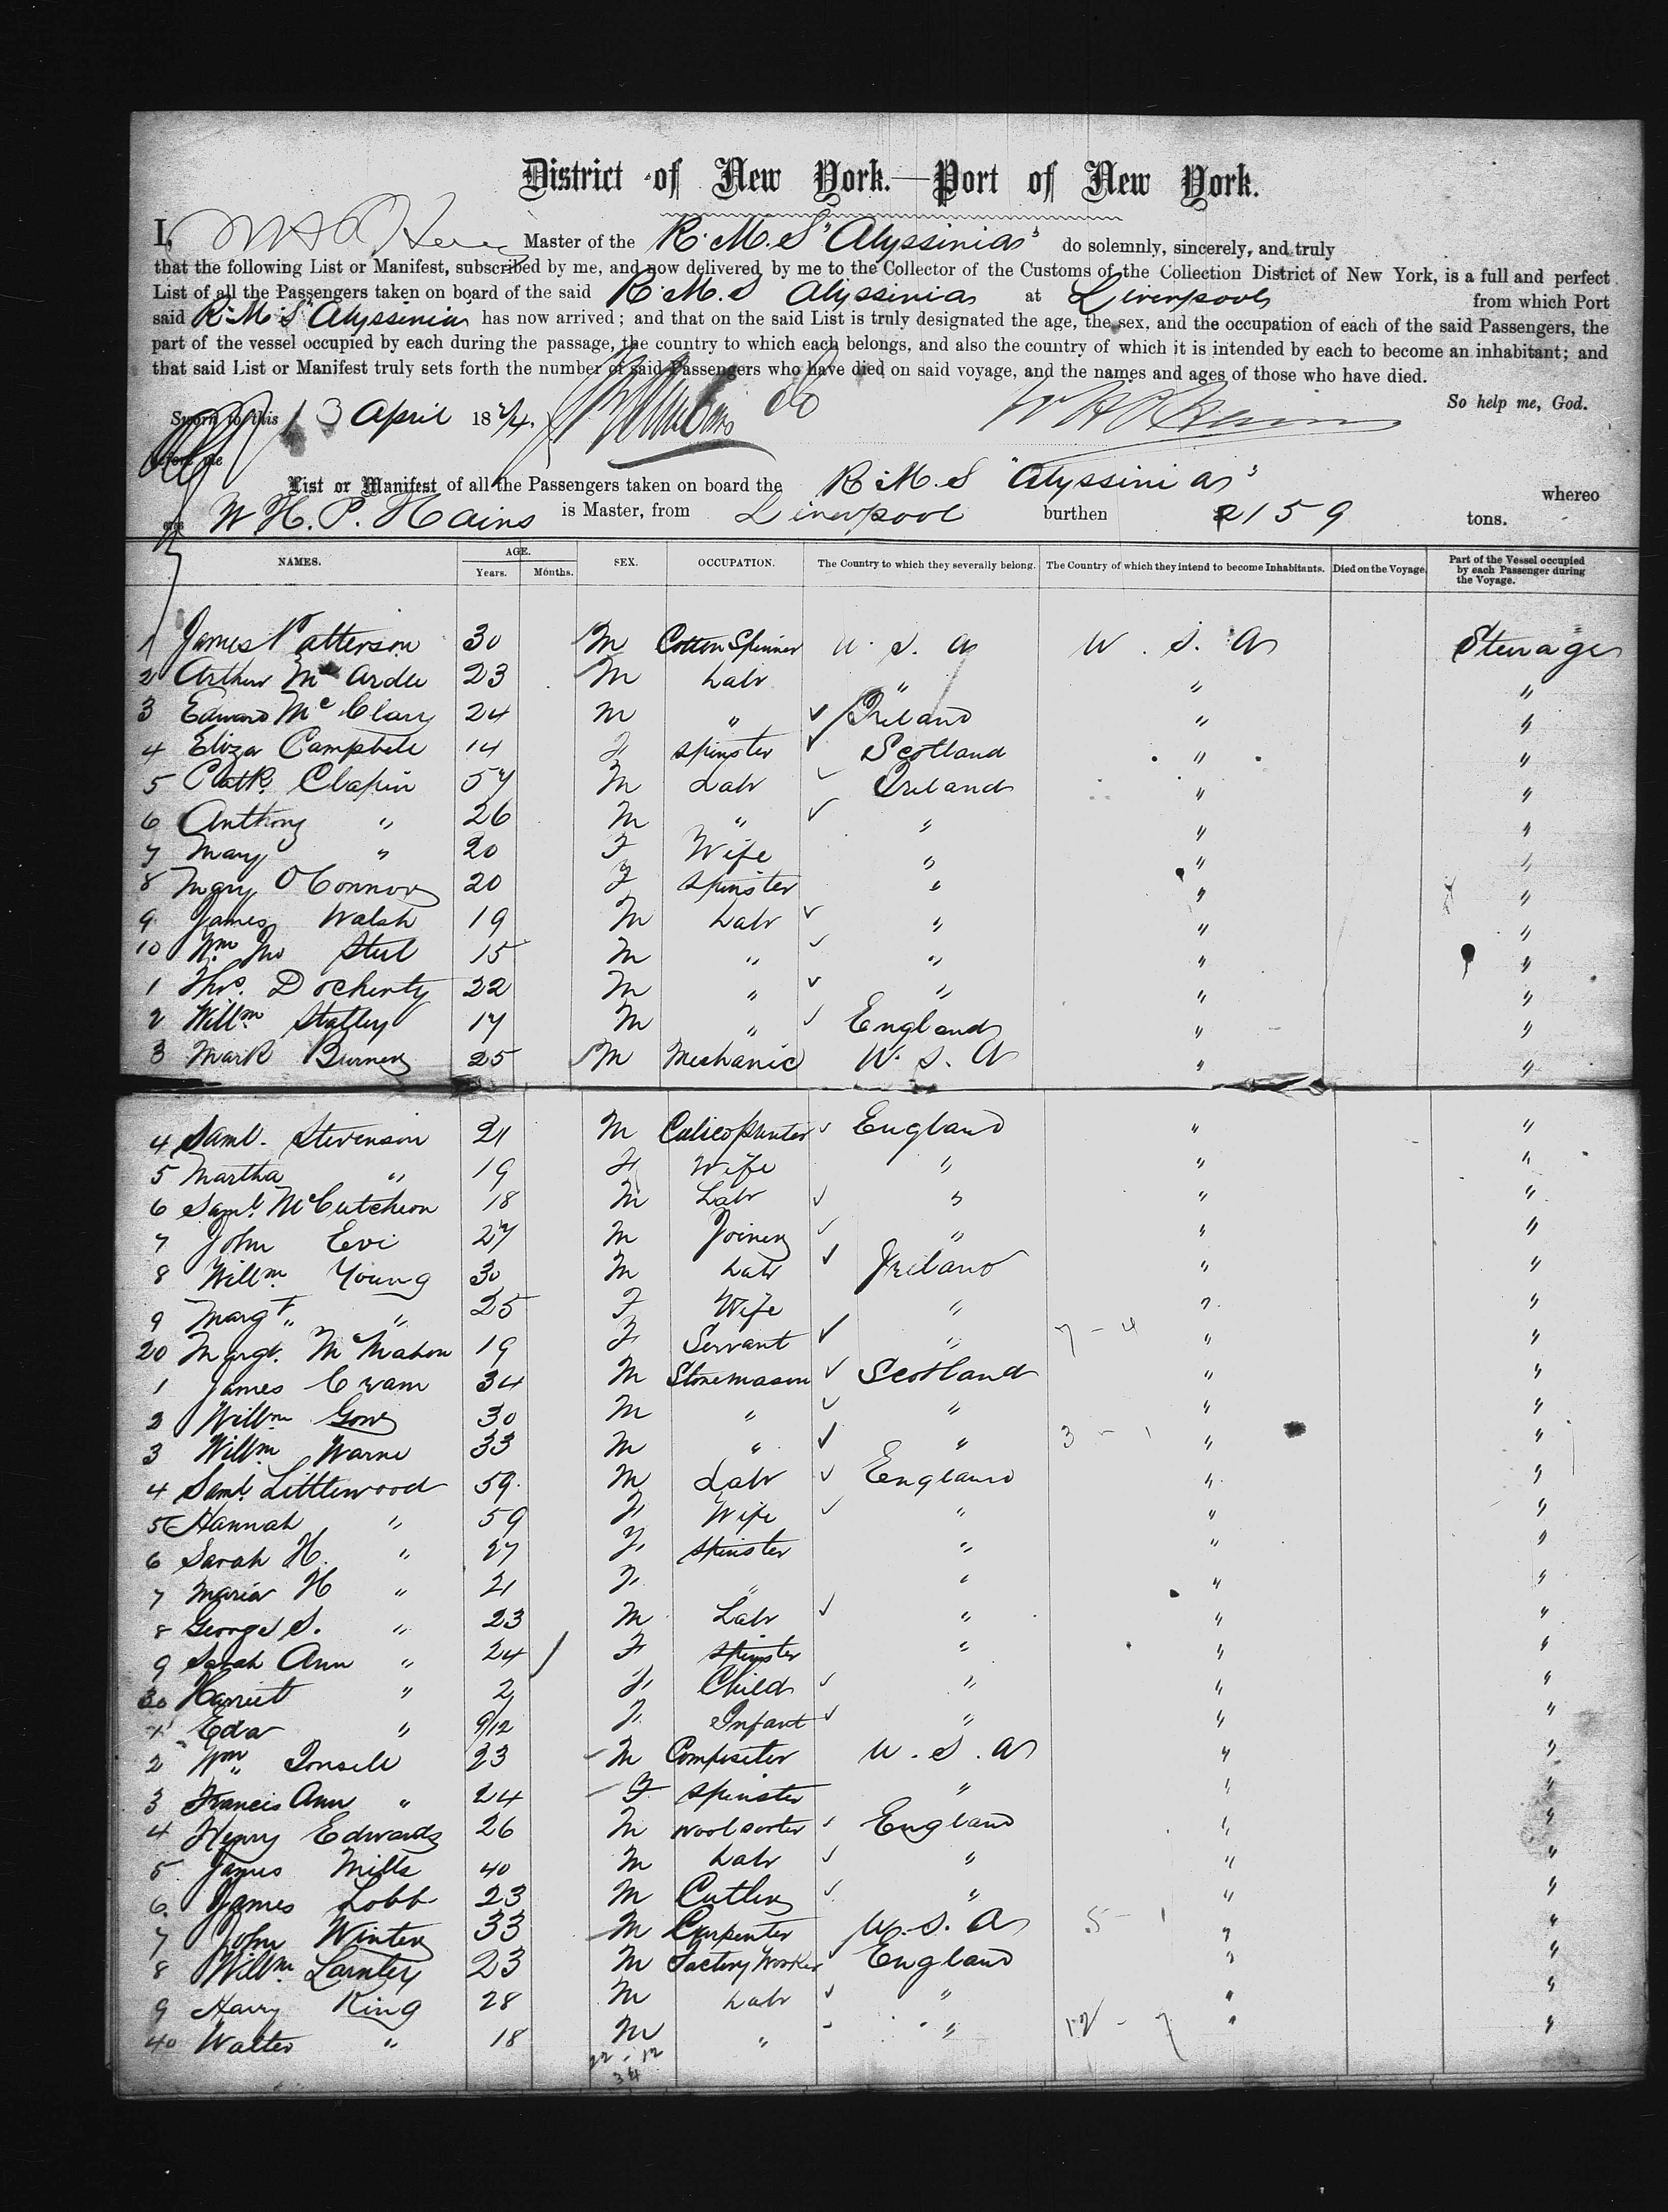 District of New York.—Port of New York.
I, Master of the R.M.S "Abyssinia" do solemnly, sincerely, and truly
that the following List or Manifest, subscribed by me, and now delivered by me to the Collector of the Customs of the Collection District of New York, is a full and perfect
List of all the Passengers taken on board of the said R.M.S Abyssinia at Liverpool from which Port
said R.M.S "Abyssinia has now arrived; and that on the said List is truly designated the age, the sex, and the occupation of each of the said Passengers, the
part of the vessel occupied by each during the passage, the country to which each belongs, and also the country of which it is intended by each to become an inhabitant; and
that said List or Manifest truly sets forth the number of said Passengers who have died on said voyage, and the names and ages of those who have died.
So help me, God.
Sworn to this 13 April 1874.
before me
List or Manifest of all the Passengers taken on board the R.M.S "Abyssinia" whereo
W H. P. Hains is Master, from Liverpool burthen 2159 tons.
NAMES. AGE. Years. Months. SEX. OCCUPATION. The Country to which they severally belong. The Country of which they intend to become Inhabitants. Died on the Voyage. Part of the Vessel occupied by each Passenger during the Voyage.
1 James Patterson 30 M Cotton Spinner U.S.A U.S.A Steerage
2 Arthur McArdle 23 M Labr " " "
3 Edward McClary 24 M " ✓ Ireland " "
4 Eliza Campbell 14 F Spinster ✓ Scotland " "
5 Patk. Clapin 57 M Labr ✓ Ireland " "
6 Anthony " 26 M " ✓ " " "
7 Mary " 20 F Wife " " "
8 Mary O'Connor 20 F Spinster " " "
9 James Walsh 19 M Labr ✓ " " "
10 Wm Jno Steel 15 M " ✓ " " "
1 Thos. Docherty 22 M " ✓ " " "
2 Willm Statley 17 M " ✓ England " "
3 Mark Burney 25 M Mechanic U.S.A " "
4 Saml. Stevenson 21 M Calico Printer ✓ England " "
5 Martha " 19 F Wife " " "
6 Saml McCutcheon 18 M Labr ✓ " " "
7 John Evi 27 M Joiner ✓ " " "
8 Willm Young 30 M Labr ✓ Ireland " "
9 Margt " 25 F Wife " " "
20 Margt. McMahon 19 F Servant ✓ " 7-4 " "
1 James Cram 34 M Stonemason ✓ Scotland " "
2 Willm Gow 30 M " ✓ " " "
3 Willm Warne 33 M " ✓ " 3-1 " "
4 Saml. Littlewood 59 M Labr ✓ England " "
5 Hannah " 59 F Wife ✓ " " "
6 Sarah H. " 27 F Spinster " " "
7 Maria H " 21 F " " " "
8 George S. " 23 M Labr ✓ " " "
9 Sarah Ann " 24 F Spinster " " "
30 Harriet " 2 F Child ✓ " " "
1 Eda " 9/12 F Infant ✓ " " "
2 Wm Tonsill 23 M Compositor U.S.A " "
3 Francis Ann " 24 F Spinster " " "
4 Henry Edwards 26 M Woolsorter ✓ England " "
5 James Mills 40 M Labr ✓ " " "
6 James Lobb 23 M Cutler ✓ " " "
7 John Winter 33 M Carpenter U.S.A 5-1 " "
8 Willm Larnley 23 M Factory Worker ✓ England " "
9 Harry King 28 M Labr ✓ " " "
40 Walter " 18 M " " 12-7 " "
22-12
34